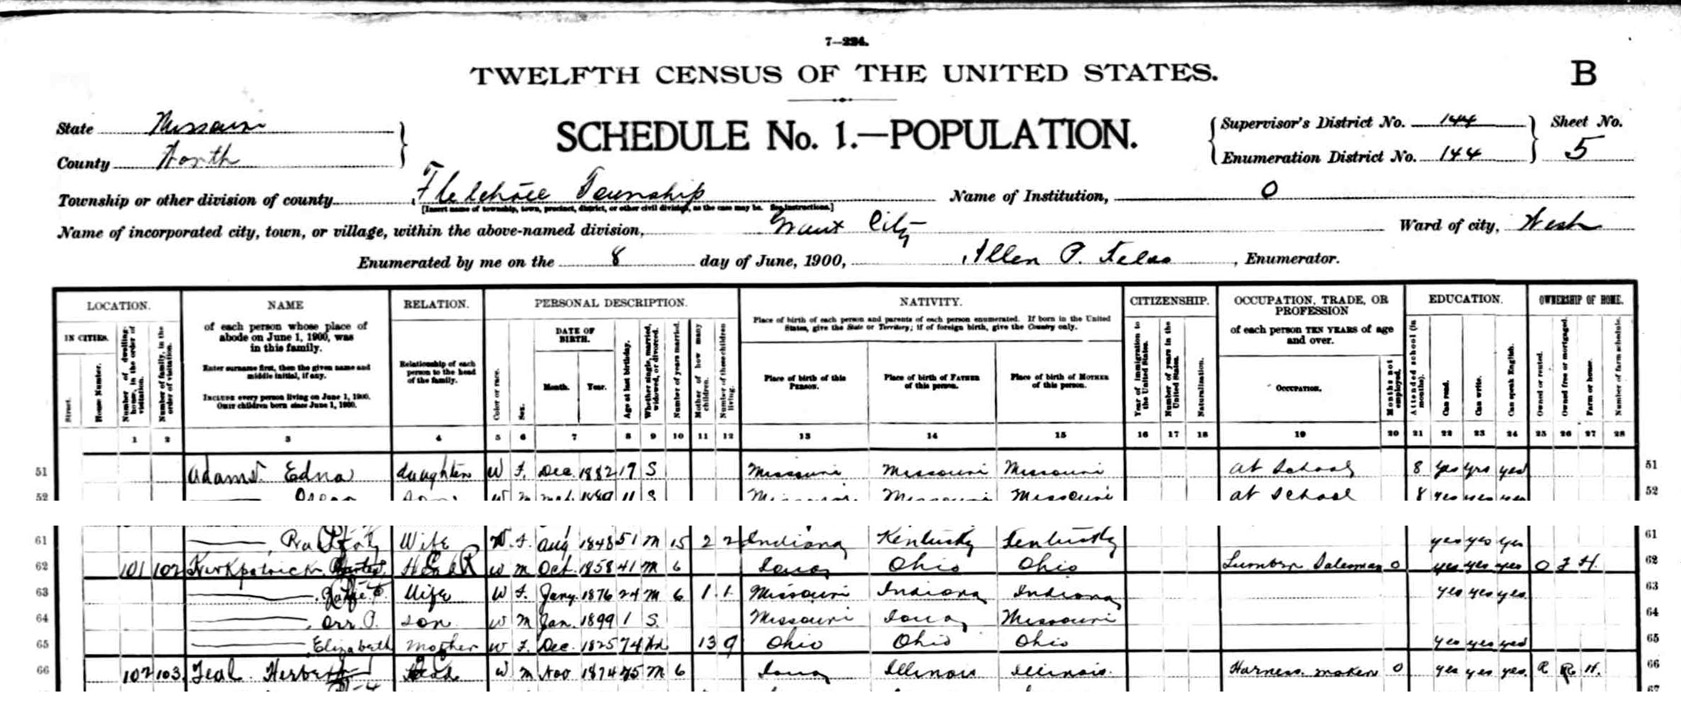 7—224.
TWELFTH CENSUS OF THE UNITED STATES.
B
State Missouri
County Worth
SCHEDULE No. 1.—POPULATION.
Supervisor's District No. 144
Enumeration District No. 144
Sheet No. 5
Township or other division of county Township
[Insert name of township, town, precinct, district, or other civil division, as the case may be. See instructions.]
Name of Institution, O
Name of incorporated city, town, or village, within the above-named division, Grant City
Ward of city, West
Enumerated by me on the 8 day of June, 1900, Allen P. , Enumerator.
LOCATION. NAME RELATION. PERSONAL DESCRIPTION. NATIVITY. CITIZENSHIP. OCCUPATION, TRADE, OR PROFESSION EDUCATION. OWNERSHIP OF HOME.
IN CITIES.
Street.
House Number.
Number of dwelling-house, in the order of visitation.
Number of family, in the order of visitation.
of each person whose place of abode on June 1, 1900, was in this family.
Enter surname first, then the given name and middle initial, if any.
INCLUDE every person living on June 1, 1900.
OMIT children born since June 1, 1900.
Relationship of each person to the head of the family.
Color or race.
Sex.
DATE OF BIRTH.
Month. Year.
Age at last birthday.
Whether single, married, widowed, or divorced.
Number of years married.
Mother of how many children.
Number of these children living.
Place of birth of each person and parents of each person enumerated. If born in the United States, give the State or Territory; if of foreign birth, give the Country only.
Place of birth of this PERSON.
Place of birth of FATHER of this person.
Place of birth of MOTHER of this person.
Year of immigration to the United States.
Number of years in the United States.
Naturalization.
of each person TEN YEARS of age and over.
OCCUPATION.
Months not employed.
Attended school (in months).
Can read.
Can write.
Can speak English.
Owned or rented.
Owned free or mortgaged.
Farm or house.
Number of farm schedule.
1 2 3 4 5 6 7 8 9 10 11 12 13 14 15 16 17 18 19 20 21 22 23 24 25 26 27 28
51 Adams Edna daughter W F Dec 1882 17 S Missouri Missouri Missouri at School 8 yes yes yes 51
52 Oscar W M 11 S Missouri Missouri Missouri at School 8 yes yes yes 52
61 Wife W F Aug 1848 51 M 15 2 2 Indiana Kentucky Kentucky yes yes yes 61
62 101 102 Kirkpatrick Head W M Oct 1858 41 M 6 Iowa Ohio Ohio Lumber Salesman 0 yes yes yes O F H 62
63 Wife W F Jany 1876 24 M 6 1 1 Missouri Indiana Indiana yes yes yes 63
64 Orr P. son W M Jan 1899 1 S Missouri Iowa Missouri 64
65 Elizabeth Mother W F Dec 1825 74 Wd 13 9 Ohio Ohio Ohio yes yes yes 65
66 102 103 Teal Herbert Head W M Nov 1874 25 M 6 Iowa Illinois Illinois Harness maker 0 yes yes yes R H 66
67